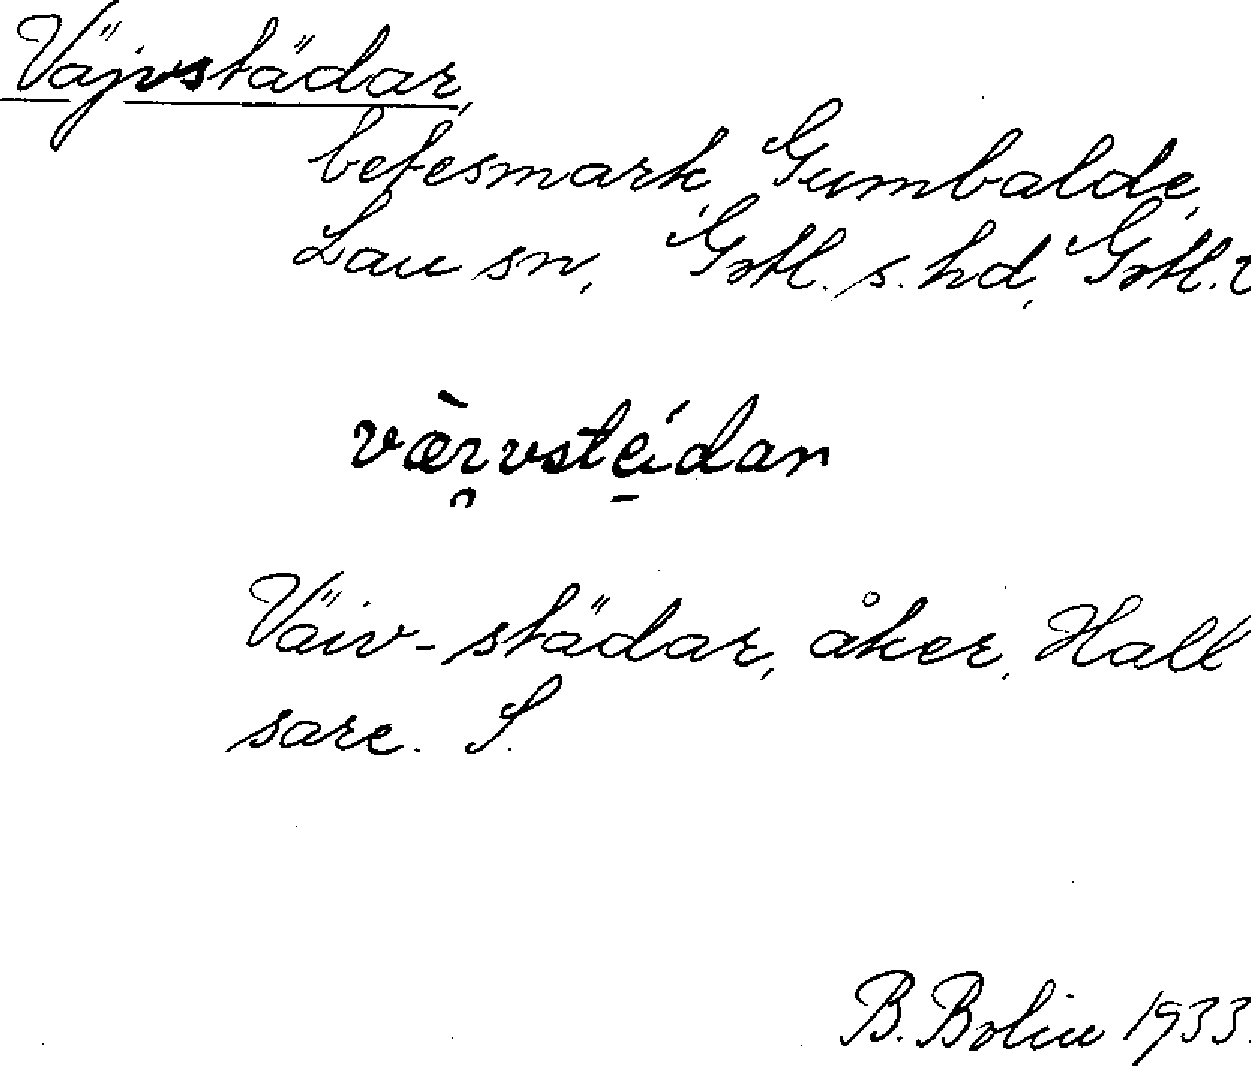 Väjvstädar,
betesmark, Gumbalde,
Lau sn, Gotl. s. hd, Gotl.
Väiv-städar, åker, Hall
sare. S.
B. Bolin 1933.